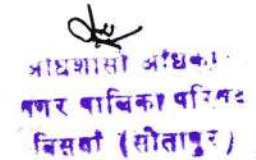 अधिशासी अधिका
नगर पालिका परिषद
बिसवां (सीतापुर)